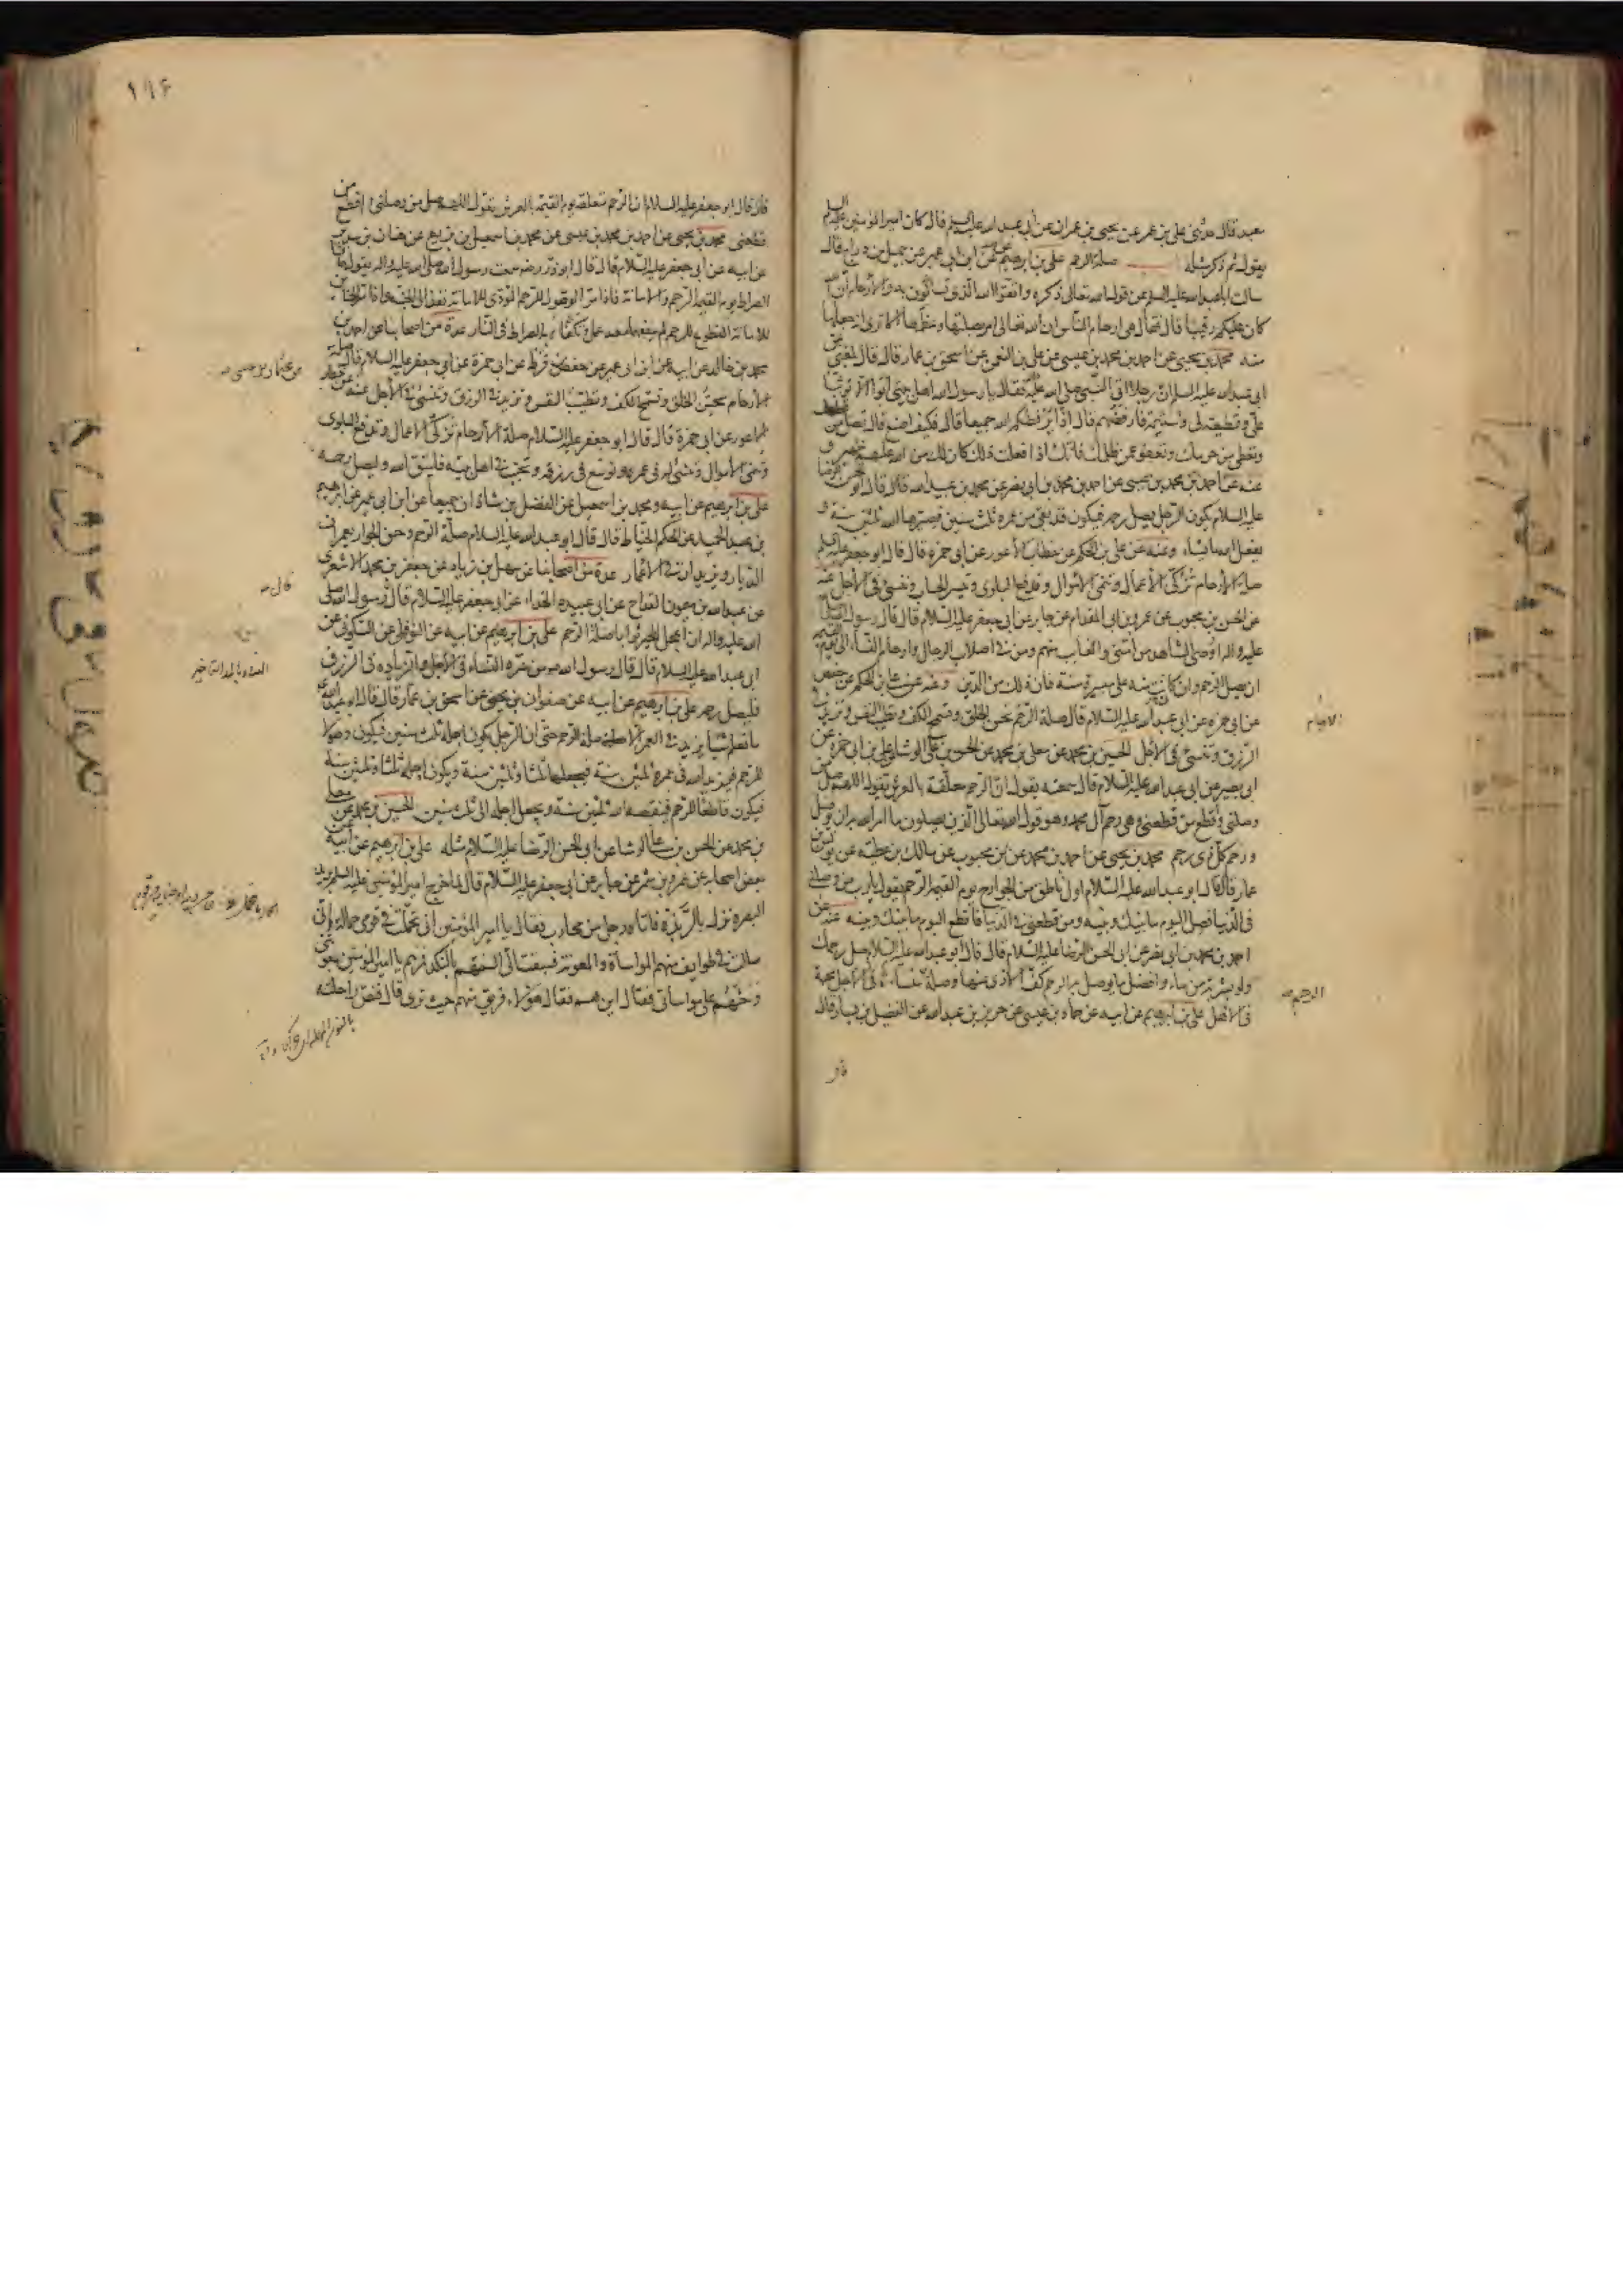 سعيد قال حدثنى على بن عمر عن يحيى بن عمران عن أبى عبد الله عليه السلام قال كان امير المؤمنين عليه السلم
يقول ثم ذكر مثله صلة الرحم على بن ابرهيم عن ابن ابى عمير عن جميل بن دراج قال
سالت ابا عبد الله عليه السلم عن قول الله تعالى ذكره واتقوا الله الذى تساءلون به والارحام ان الله
كان عليكم رقيبا قال فقال هى ارحام الناس ان الله تعالى امر بصلتها وعظمها الا ترى انه جعلها
منه محمد بن يحيى عن احمد بن محمد بن عيسى عن على بن النعمن عن اسحق بن عمار قال قال بلغنى عن
ابى عبد الله عليه السلم ان رجلا اتى النبى صلى الله عليه فقال يا رسول الله اهل بيتى ابوا الا توثبا
على وقطيعة لى وشتيمة فارفضهم قال اذا يرفضكم الله جميعا قال فكيف اصنع قال تصل من قطعك
وتعطى من حرمك وتعفو عمن ظلمك فانك اذا فعلت ذلك كان لك من الله عليهم ظهير و
عنه عن احمد بن محمد بن عيسى عن احمد بن محمد بن ابى نصر عن محمد بن عبيد الله قال قال ابو الحسن الرضا
عليه السلام يكون الرجل يصل رحمه فيكون قد بقى من عمره ثلث سنين فيصيرها الله ثلثين سنة و
يفعل الله ما يشاء وعنه عن على بن الحكم عن خطاب الاعور عن ابى حمزة قال قال ابو جعفر عليه السلم
صلة الارحام تزكى الاعمال وتنمى الاموال وتدفع البلوى وتيسر الحساب وتنسئ فى الاجل عنه
عن الحسن بن محبوب عن عمرو بن ابى المقدام عن جابر عن ابى جعفر عليه السلام قال قال رسول الله صلى
عليه واله اوصى الشاهد من أمتى والغايب منهم ومن فى اصلاب الرجال وارحام النساء الى يوم القيمة
ان يصل الرحم وان كانت منه على مسيرة سنة فان ذلك من الدين وعنه عن على بن الحكم عن حفص
عن ابى حمزه عن ابى عبد الله عليه السلام قال صلة الرحم تحسن الخلق وتسمح الكف وتطيب النفس وتزيد فى
الرزق وتنسئ فى الاجل الحسين بن محمد عن معلى بن محمد عن الحسن بن على الوشا عن على بن ابى حمزه عن
ابى بصير عن ابى عبد الله عليه السلام قال سمعته يقول ان الرحم معلقة بالعرش تقول اللهم صل من
وصلنى واقطع من قطعنى وهى رحم آل محمد وهو قول الله تعالى الذين يصلون ما امر الله به ان يوصل
ورحم كل ذى رحم محمد بن يحيى عن احمد بن محمد عن ابن محبوب عن مالك بن عطيه عن يونس بن
عمار قال قال ابو عبد الله عليه السلام اول ناطق من الجوارح يوم القيمة الرحم يقول يا رب من وصلنى
فى الدنيا فصل اليوم ما بينك وبينه ومن قطعنى فى الدنيا فاقطع اليوم ما بينك وبينه عنه عن
احمد بن محمد بن ابى نصر عن ابى الحسن الرضا عليه السلام قال قال ابو عبد الله عليه السلام صل رحمك
ولو بشربة من ماء وافضل ما يوصل به الرحم كف الاذى عنها وصلة الرحم منساة فى الاجل محبة
فى الاهل على بن ابرهيم عن ابيه عن حماد بن عيسى عن حريز بن عبد الله عن الفضيل بن يسار قال
قال
الارحام
الرحم صح
١٩٤
قال قال ابو جعفر عليه السلام ان الرحم متعلقة يوم القيمة بالعرش تقول اللهم صل من وصلنى واقطع من
قطعنى محمد بن يحيى عن احمد بن محمد بن عيسى عن محمد بن اسمعيل بن بزيع عن حنان بن سدير
عن ابيه عن ابى جعفر عليه السلام قال قال ابو ذر رض سمعت رسول الله صلى الله عليه واله يقول حافتا
الصراط يوم القيمة الرحم والامانة فاذا مر الوصول للرحم المؤدى للامانة نفذ الى الجنة واذا مر الخائن
للامانة القطوع للرحم لم ينفعهما معه عمل وتكفأ به الصراط فى النار عدة من اصحابنا عن احمد بن
محمد بن خالد عن ابيه عن ابن ابى عمير عن حفص عن قرط عن ابى حمزة عن ابى جعفر عليه السلام قال صلة
الارحام تحسن الخلق وتسمح الكف وتطيب النفس وتزيد فى الرزق وتنسئ فى الاجل عنه عن خطاب
الاعور عن ابى حمزة قال قال ابو جعفر عليه السلام صلة الارحام تزكى الاعمال وتدفع البلوى
وتنمى الاموال وتنسئ له فى عمره وتوسع فى رزقه وتحبب فى اهل بيته فليتق الله وليصل رحمه
على بن ابرهيم عن ابيه ومحمد بن اسمعيل عن الفضل بن شاذان جميعا عن ابن ابى عمير عن ابرهيم
بن عبد الحميد عن الحكم الخياط قال قال ابو عبد الله عليه السلام صلة الرحم وحق الجوار يعمران
الديار ويزيدان فى الاعمار عدة من اصحابنا عن سهل بن زياد عن جعفر بن محمد الاشعرى
عن عبد الله بن ميمون القداح عن ابى عبيده الحذاء عن ابى جعفر عليه السلام قال رسول الله صلى
الله عليه واله ان اعجل الخير ثوابا صلة الرحم على بن ابرهيم عن ابيه عن النوفلى عن السكونى عن
ابى عبد الله عليه السلام قال قال رسول الله ص من سره النساء فى الاجل والزيادة فى الرزق
فليصل رحمه على بن ابرهيم عن ابيه عن صفوان بن يحيى عن اسحق بن عمار قال قال ابو عبد الله
ما نعلم شيئا يزيد فى العمر الا صلة الرحم حتى ان الرجل يكون اجله ثلث سنين فيكون وصولا
للرحم فيزيد الله فى عمره ثلثين سنة فيجعلها ثلثا وثلثين سنة ويكون اجله ثلثا وثلثين سنة
فيكون قاطعا للرحم فينقصه الله ثلثين سنة ويجعل اجله الى ثلث سنين الحسين بن محمد عن معلى
بن محمد عن الحسن بن على الوشا عن ابى الحسن الرضا عليه السلام مثله على بن ابرهيم عن ابيه عن
بعض اصحابه عن عمرو بن شمر عن جابر عن ابى جعفر عليه السلام قال لما خرج امير المؤمنين عليه السلم يريد
البصره نزل بالربذة فاتاه رجل من محارب فقال يا امير المؤمنين انى تحملت فى قومى حمالة وانى
سالت فى طوايف منهم المواساة والمعونة فسبقت الى السنتهم بالنكد فمرهم يا امير المؤمنين بمعونتى
وحثهم على مواساتى فقال اين هم فقال هؤلاء فريق منهم حيث ترى قال فنص راحلته
عن عثمان بن عيسى صح
قال صح
النساء بالمد التاخير